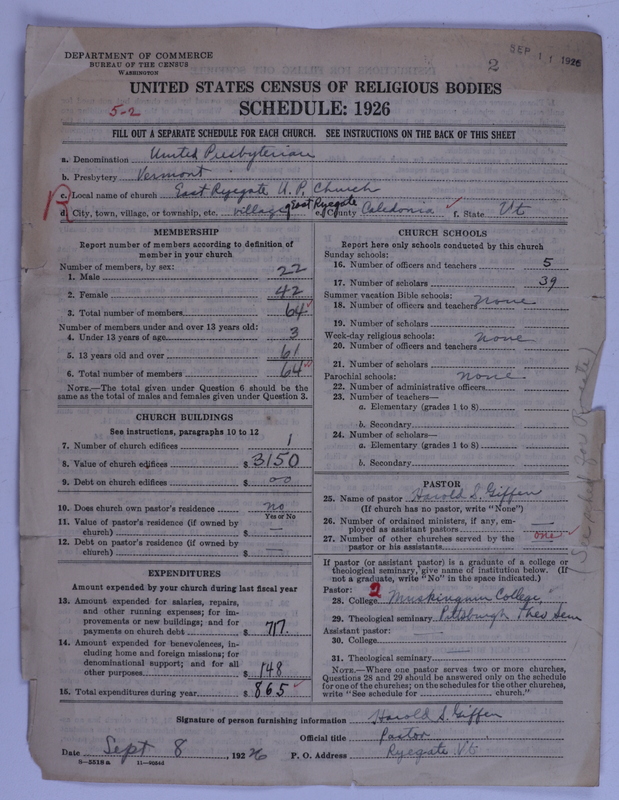 DEPARTMENT OF COMMERCE
BUREAU OF THE CENSUS
WASHINGTON
2
SEP 11 1926
UNITED STATES CENSUS OF RELIGIOUS BODIES
5-2
SCHEDULE: 1926
FILL OUT A SEPARATE SCHEDULE FOR EACH CHURCH. SEE INSTRUCTIONS ON THE BACK OF THIS SHEET
a. Denomination United Presbyterian
b. Presbytery Vermont
c. Local name of church East Ryegate U.P. Church
R
d. City, town, village, or township, etc. village East Ryegate e. County Caledonia f. State Vt
MEMBERSHIP
Report number of members according to definition of
member in your church
Number of members, by sex:
1. Male 22
2. Female 42
3. Total number of members 64
Number of members under and over 13 years old:
4. Under 13 years of age 3
5. 13 years old and over 61
6. Total number of members 64
NOTE.—The total given under Question 6 should be the
same as the total of males and females given under Question 3.
CHURCH BUILDINGS
See instructions, paragraphs 10 to 12
7. Number of church edifices 1
8. Value of church edifices $ 3150
9. Debt on church edifices $ 00
10. Does church own pastor's residence no
Yes or No
11. Value of pastor's residence (if owned by
church) $ —
12. Debt on pastor's residence (if owned by
church) $ —
EXPENDITURES
Amount expended by your church during last fiscal year
13. Amount expended for salaries, repairs,
and other running expenses; for im-
provements or new buildings; and for
payments on church debt $ 717.
14. Amount expended for benevolences, in-
cluding home and foreign missions; for
denominational support; and for all
other purposes $ 148
15. Total expenditures during year $ 865
CHURCH SCHOOLS
Report here only schools conducted by this church
Sunday schools:
16. Number of officers and teachers 5
17. Number of scholars 39
Summer vacation Bible schools:
18. Number of officers and teachers none
19. Number of scholars
Week-day religious schools: none
20. Number of officers and teachers
21. Number of scholars
Parochial schools: none
22. Number of administrative officers
23. Number of teachers—
a. Elementary (grades 1 to 8)
b. Secondary
24. Number of scholars—
a. Elementary (grades 1 to 8)
b. Secondary
PASTOR
25. Name of pastor Harold S. Giffen
(If church has no pastor, write "None")
26. Number of ordained ministers, if any, em-
ployed as assistant pastors —
27. Number of other churches served by the
pastor or his assistants one
If pastor (or assistant pastor) is a graduate of a college or
theological seminary, give name of institution below. (If
not a graduate, write "No" in the space indicated.)
Pastor: 2
28. College Muskingum College
29. Theological seminary Pittsburgh Theo Sem
Assistant pastor:
30. College
31. Theological seminary
NOTE.—Where one pastor serves two or more churches,
Questions 28 and 29 should be answered only on the schedule
for one of the churches; on the schedules for the other churches,
write "See schedule for church."
Signature of person furnishing information Harold S. Giffen
Official title Pastor
Date Sept 8, 1926 P. O. Address Ryegate Vt
8—5518 a